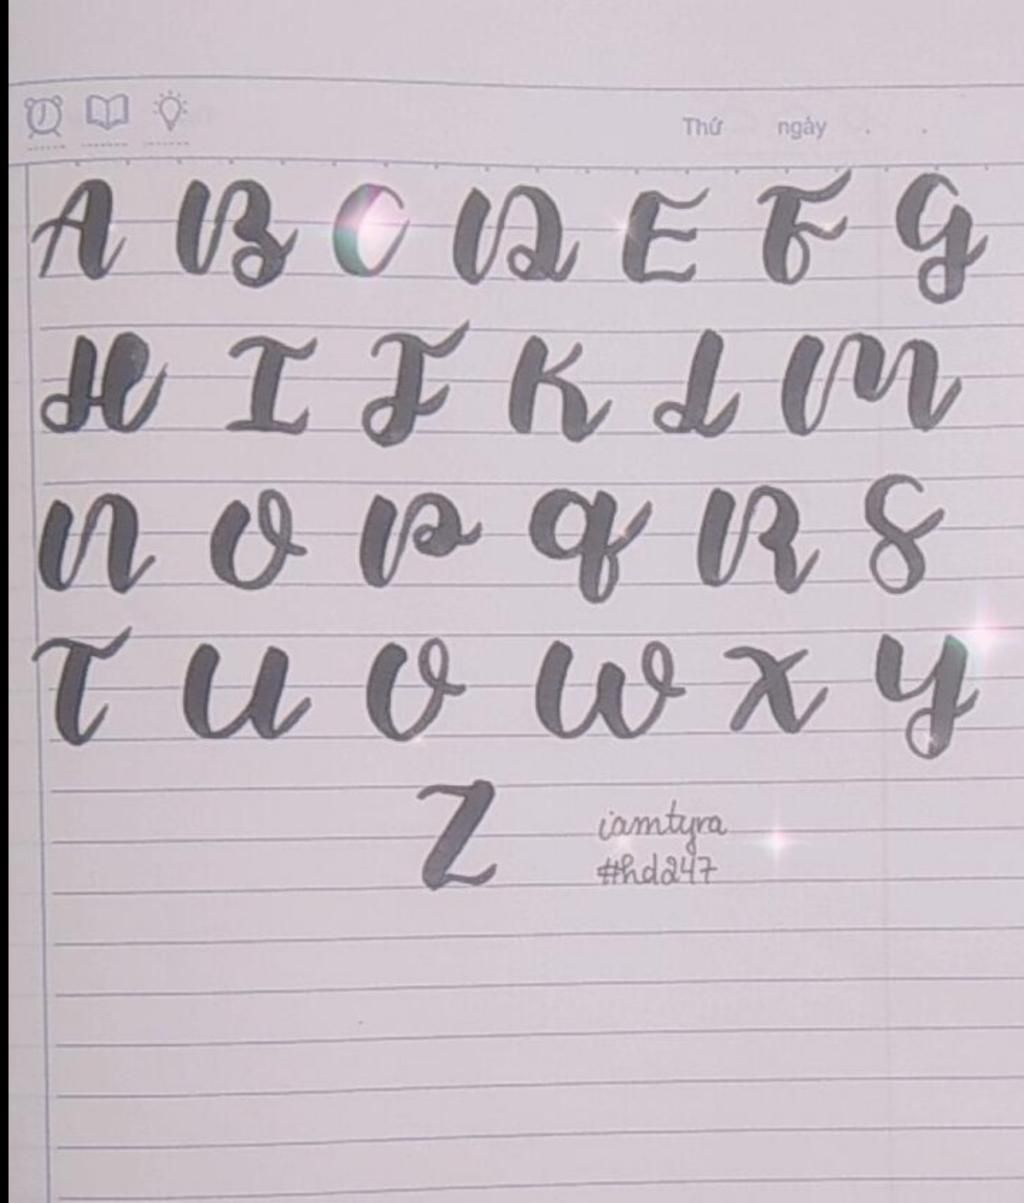 Thứ ngày . .
A B C D E F G
H I J K L M
N O P Q R S
T U V W X Y
Z
iamtyra
#hd247